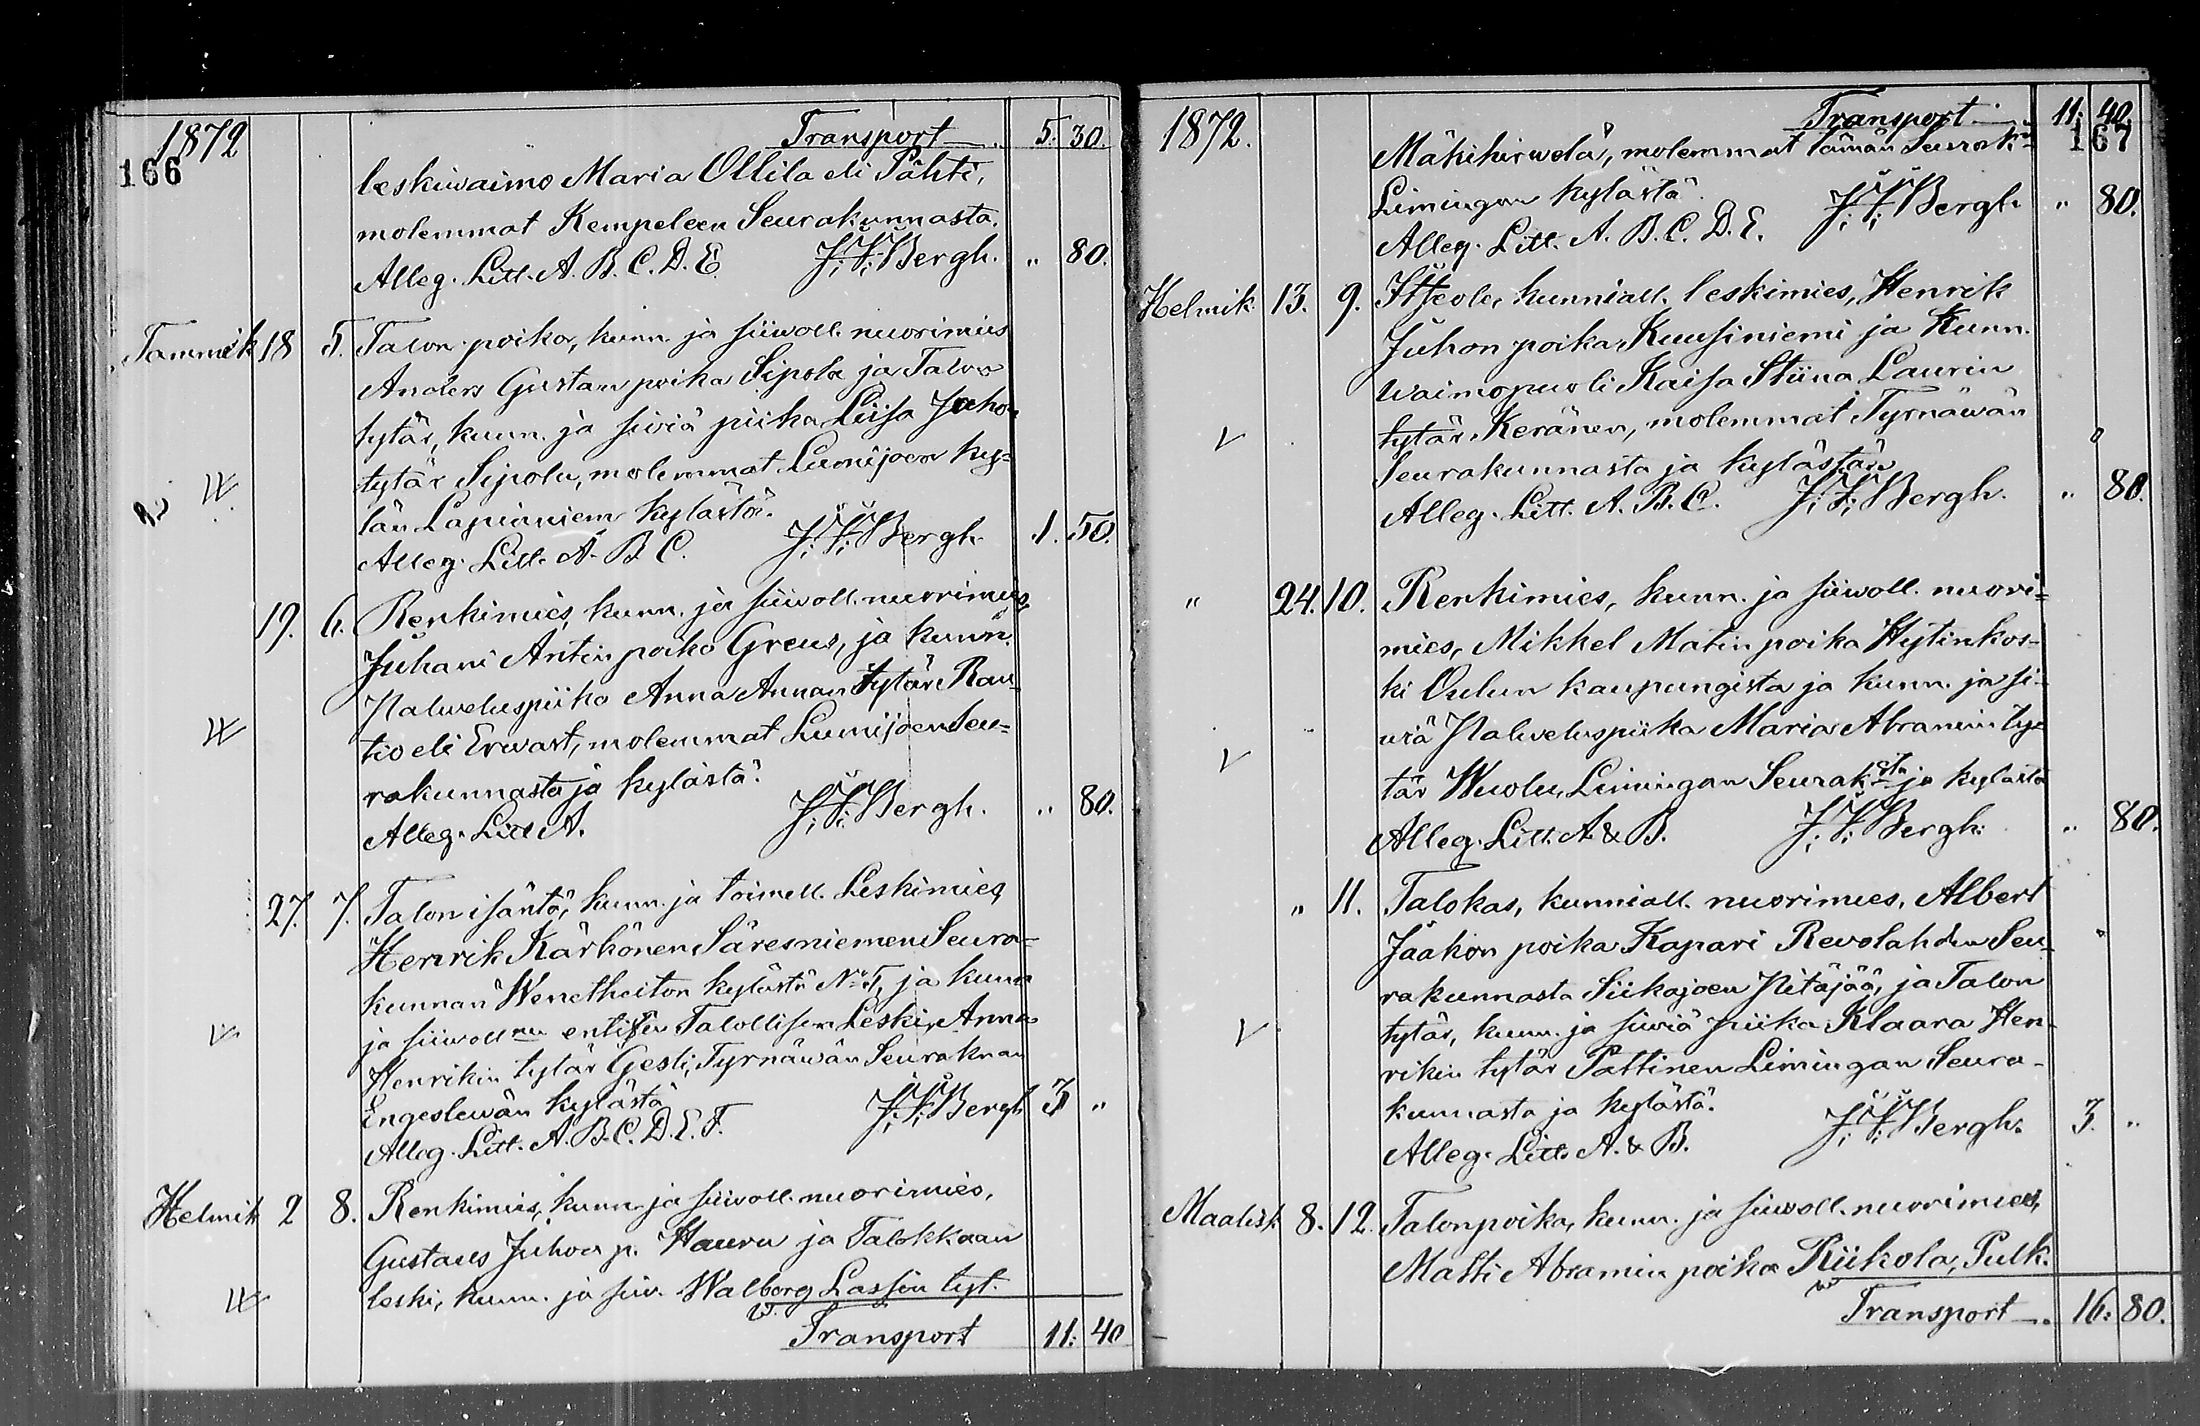 1872 Transport 5. 30.
166
leskiwaimo Maria Ollila eli Pähti,
molemmat Kempeleen Seurakunnasta.
Alleg. Litt. A. B. C. D. E. J. F. Bergh. " 80.
Tammik 18 5. Talon poika, kunn. ja siiwoll. nuorimies
Anders Gustaw poika Sipola ja Talon
tytär, kunn. ja siwiä piika Liisa Juhon
tytär Sipola, molemmat Lumijoen ky-
län Lapinniem kylästä.
Alleg. Litt. A. B C. J. F. Bergh 1. 50.
19. 6. Renkimies, kunn. ja siiwoll. nuorimies,
Juhani Antin poika Greus, ja kunn.
Palweluspiika Anna Annan tytär Rau-
tio eli Erwast, molemmat Lumijoen Seu-
rakunnasta ja kylästä.
Alleg. Litt A. J. F. Bergh. " 80.
27. 7. Talon isäntä, kunn. ja toimell. Leskimies
Henrik Kärkönen Säresniemen Seura-
kunnan Wenetheiton kylästä No 5, ja kunn
ja siiwoll entisen Talollisen Leski, Anna
Henrikin tytär Gesti, Tyrnäwän Seuraknan
Engeslewän kylästä
Alleg. Litt. A. B. C. D. E. F. J. F. Bergh 3 "
Helmik 2 8. Renkimies, kunn. ja siiwoll. nuorimies,
Gustaus Juhon p. Hauru ja Talokkaan
leski, kunn. ja siw. Walborg Lassin tyt.
Transport 11: 40
1872. Transport 11: 40.
167
Mäkihirwelä, molemmat tämän Seurak
Limingan kylästä.
Alleg. Litt. A. B. C. D. E. J. F. Bergh " 80.
Helmik 13. 9. Itseole, kunniall. leskimies, Henrik
Juhon poika Kuusiniemi ja Kunn.
waimopuoli Kaisa Stiina Laurin
tytär Keränen, molemmat Tyrnäwän
Seurakunnasta ja kylästä
Alleg. Litt. A. B. C. J. F. Bergh. " 80.
" 24. 10. Renkimies, kunn. ja siiwoll. nuori-
mies, Mikkel Matin poika Hytinkos-
ki Oulun kaupungista ja kunn. ja si-
wiä Palweluspiika Maria Abramin ty-
tär Wuolu, Limingan Seuraksta ja kylästä
Alleg. Litt. A & B. J. F. Bergh. " 80.
" 11. Talokas, kunniall. nuorimies, Albert
Jaakon poika Kapari Revolahden Seu-
rakunnasta Siikajoen Pitäjää, ja Talon
tytär, kunn. ja siwiä piika Klaara Hen-
rikin tytär Pattinen Limingan Seura-
kunnasta ja kylästä.
Alleg. Litt. A. & B. J. F. Bergh. 3. "
Maalisk 8. 12. Talonpoika, kunn. ja siiwoll. nuorimies,
Matti Abramin poika Riikola, Pulk.
Transport 16: 80.